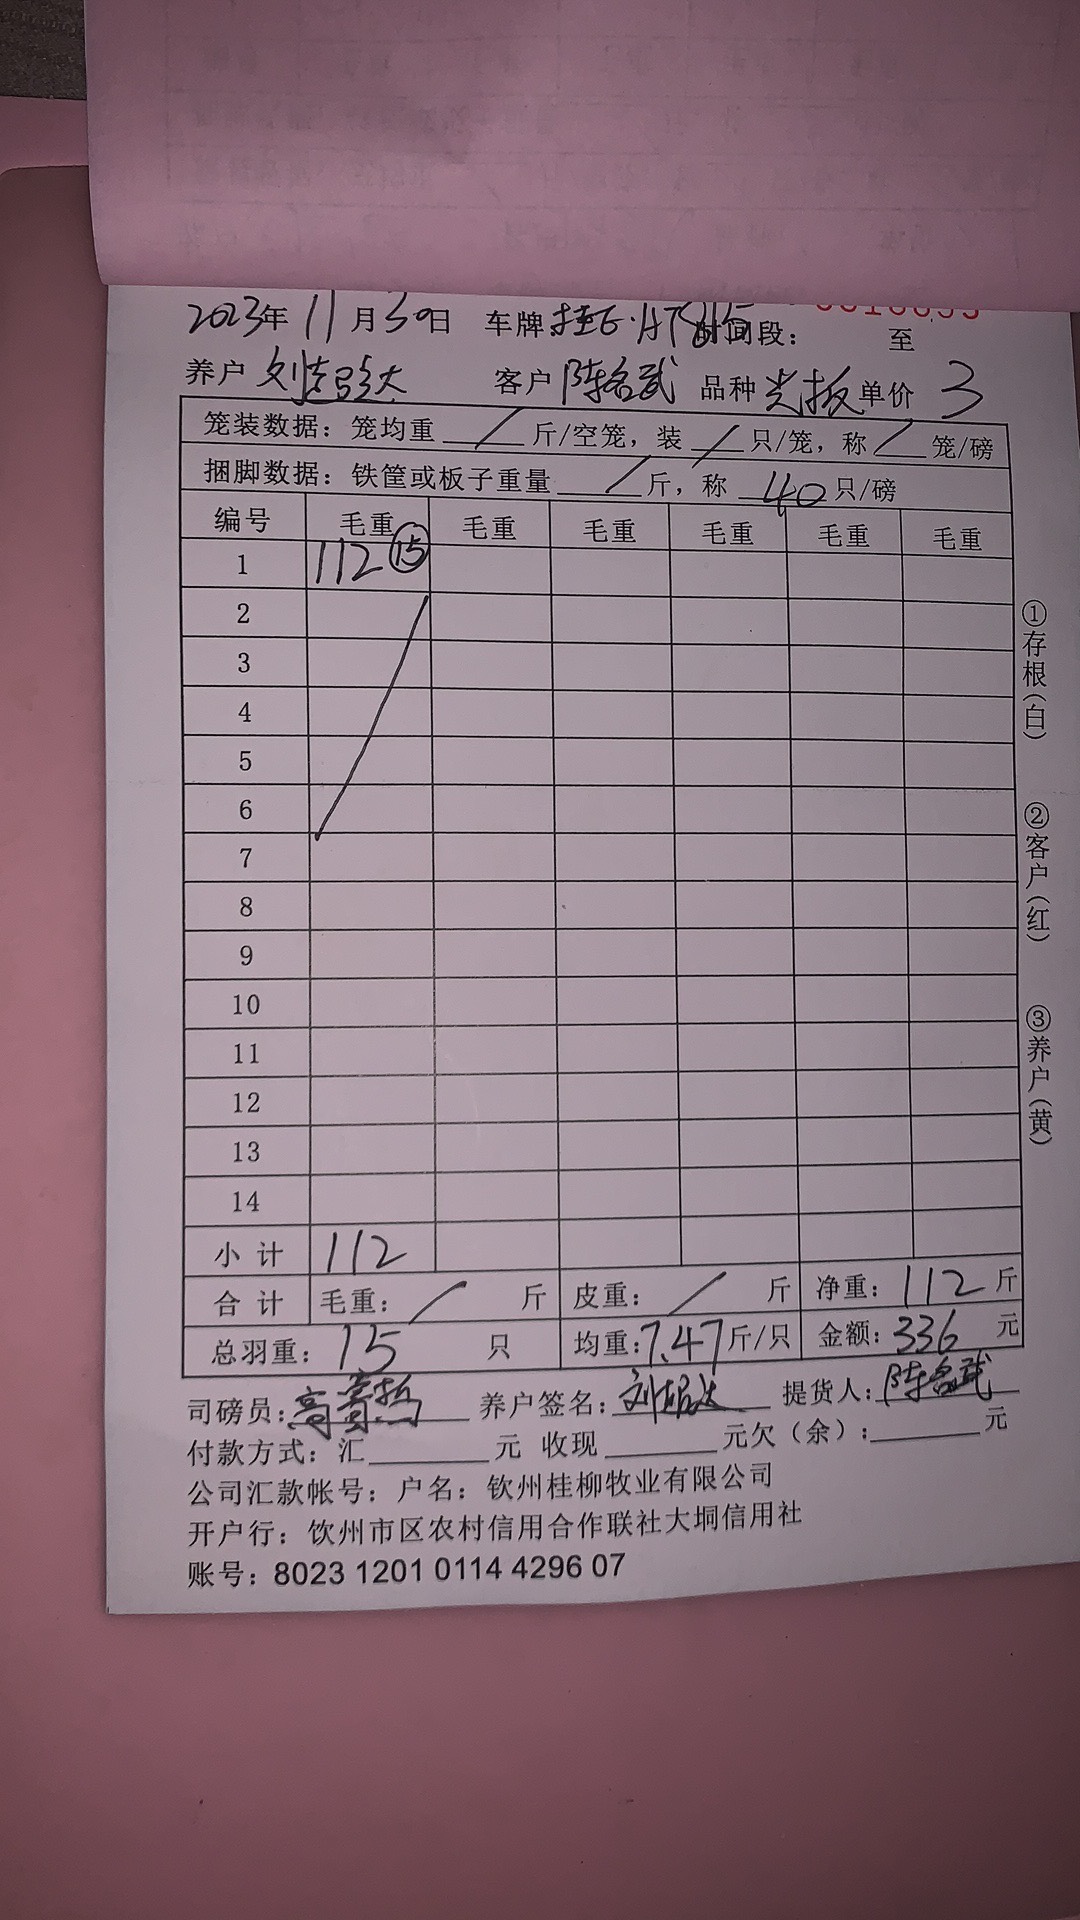 2023年 11月30日 车牌 时间段： 至
养户 客户 陈名武 品种 光板 单价 3
笼装数据：笼均重 / 斤/空笼，装 / 只/笼，称 / 笼/磅
捆脚数据：铁筐或板子重量 / 斤，称 40 只/磅
编号 毛重 毛重 毛重 毛重 毛重 毛重
1 112 ⑮
2
3
4
5
6
7
8
9
10
11
12
13
14
小计 112
合计 毛重： / 斤 皮重： / 斤 净重：112 斤
总羽重：15 只 均重：7.47 斤/只 金额：336 元
司磅员： 养户签名： 提货人：陈名武
付款方式：汇 元 收现 元欠（余）： 元
公司汇款帐号：户名：钦州桂柳牧业有限公司
开户行：饮州市区农村信用合作联社大垌信用社
账号：8023 1201 0114 4296 07
①存根（白）
②客户（红）
③养户（黄）